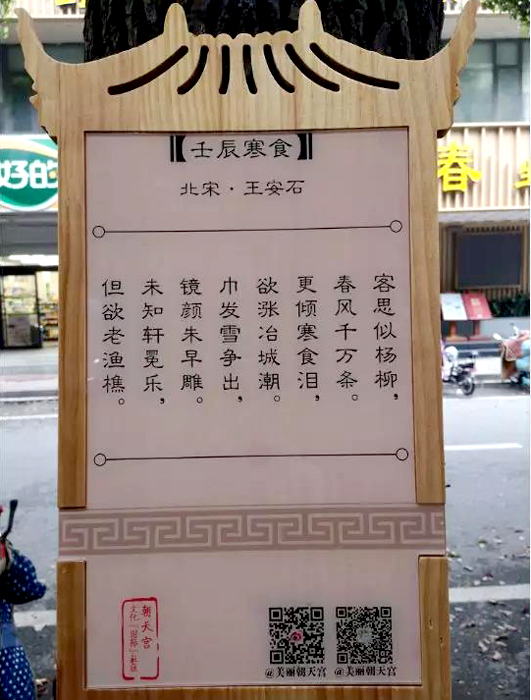 【壬辰寒食】
北宋·王安石
客思似杨柳，
春风千万条。
更倾寒食泪，
欲涨冶城潮。
巾发雪争出，
镜颜朱早雕。
未知轩冕乐，
但欲老渔樵。
朝天宫
@美丽朝天宫
@美丽朝天宫
好的
春